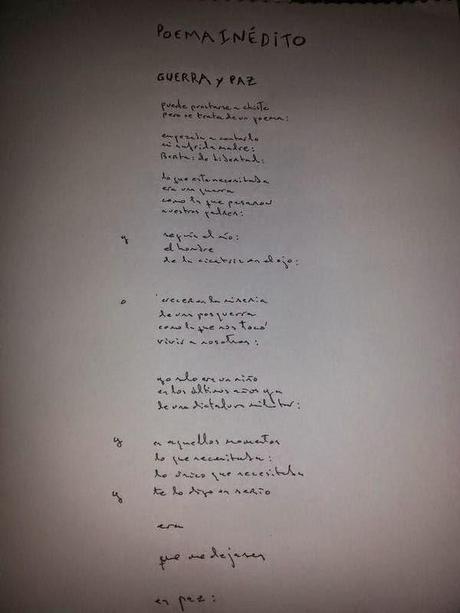 POEMA INÉDITO
GUERRA Y PAZ
puede prestarse a chiste
pero se trata de un poema:
empezaba a contarlo
mi sufrida madre:
Berta: la libertad:
lo que este necesitaba
era una guerra
como la que pasaron
nuestros padres:
y seguía el mío:
el hombre
de la cicatriz en el ojo:
o crecer en la miseria
de una posguerra
como la que nos tocó
vivir a nosotros:
yo sólo era un niño
en los últimos años ya
de una dictadura militar:
y en aquellos momentos
lo que necesitaba:
lo único que necesitaba
y te lo digo en serio
era
que me dejasen
en paz: